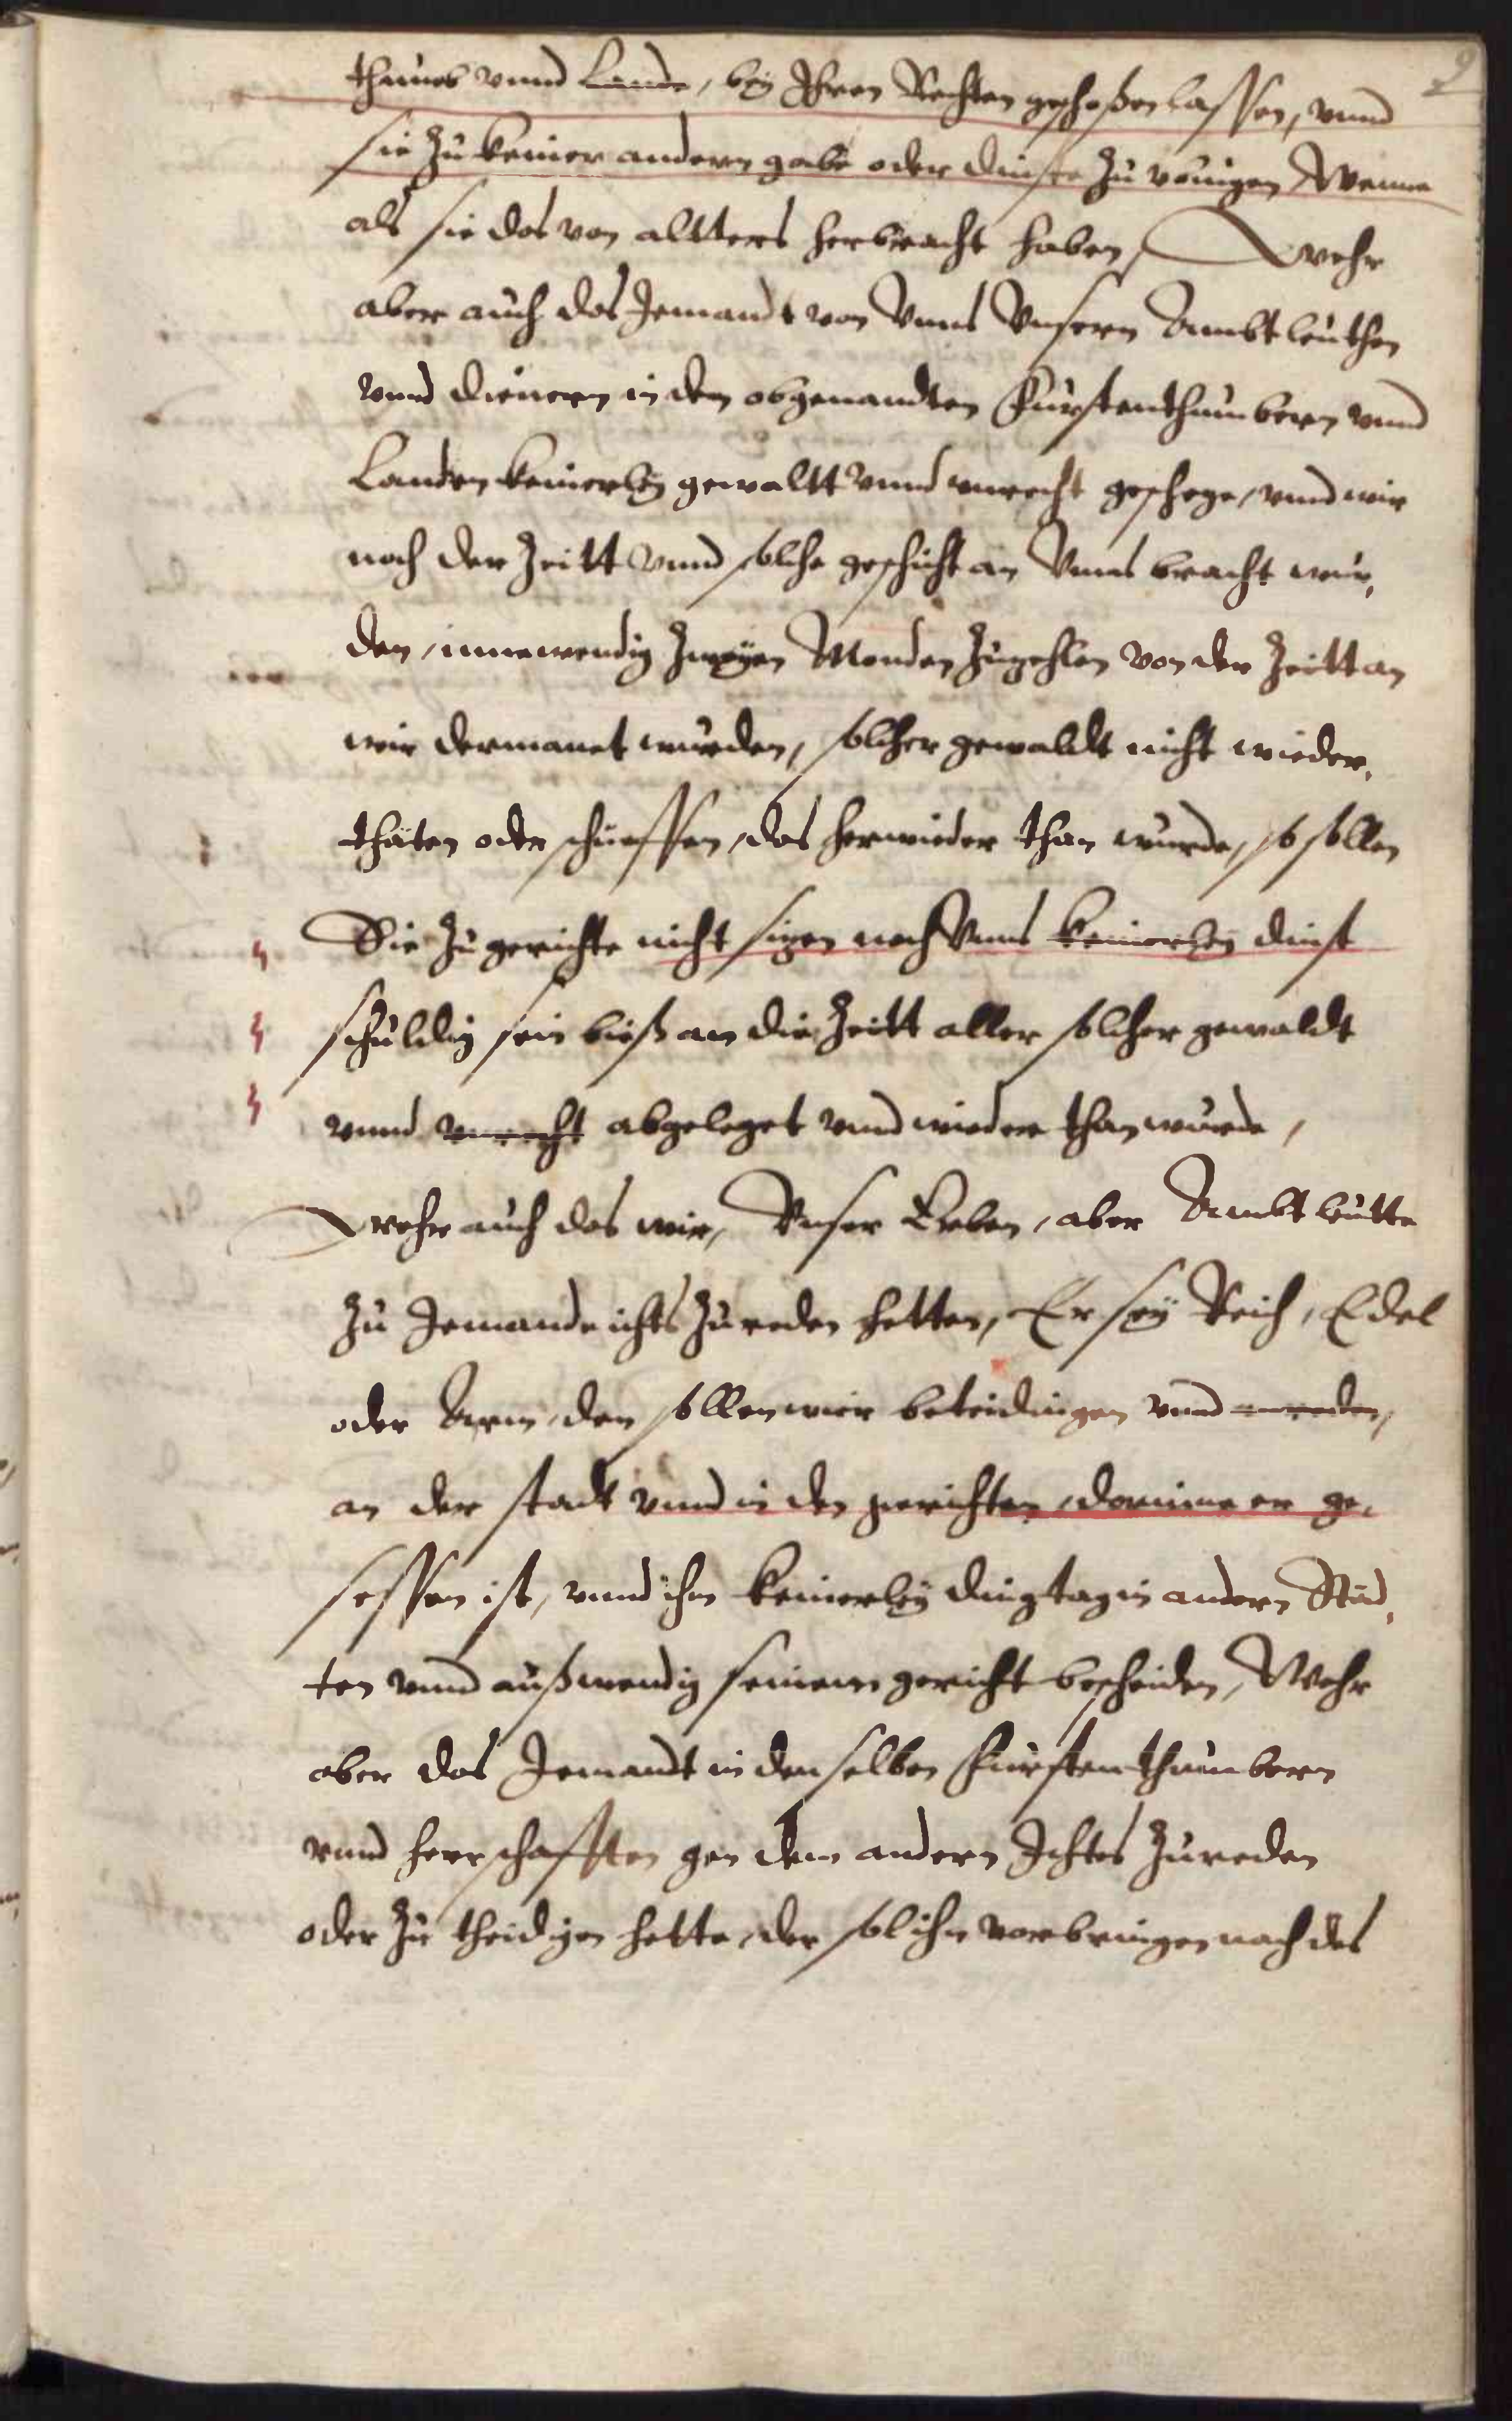 2
thumbs vnnd Lande, bey Ihren Rechten geschoßen lassen, vnnd
sie zu keiner andern gabe oder dinste zu Wenne
als sie das von altters herbracht haben, Wehr
aber auch das Jemandt von Vnns Vnsern Ambtleuthen
vnnd dienern in den obgenandten Furstenthumbern vnnd
Landen keinerley gewaltt vnnd vnrecht geschege, vnnd wir
noch der Zeitt vnnd solche geschicht an Vnns bracht wur,
den, innewendig Zweyen Monden Zuzehlen von der Zeitt an
wir dermanet wurden, solcher gewaldt nicht wieder,
thäten oder schueffen, das herwieder than wurde, so sollen
Sie zu gerichte nicht sizen noch Vnns keinerley dinst
schuldig sein bieß an die Zeitt aller solcher gewaldt
vnnd vnrecht abgeleget vnnd wieder than wurde,
Wehr auch das wir, Vnser Erben, aber Ambtleutte
Zu Jemande ichts Zureden hetten, Er sey Reich, Edel
oder Arm, den sollen wir beteidingen vnnd
an der stadt vnnd in den gerichten, dorinne er ge,
sessen ist, vnnd ihm keinerley dingtag in andern Städ,
ten vnnd außwendig seinem gericht bescheiden, Wehr
aber das Jemandt in denselben Furstenthumbern
vnnd herrschafften gen dem andern Ichtes Zureden
oder zu theidigen hette, der sol ihn vorbringen nach des